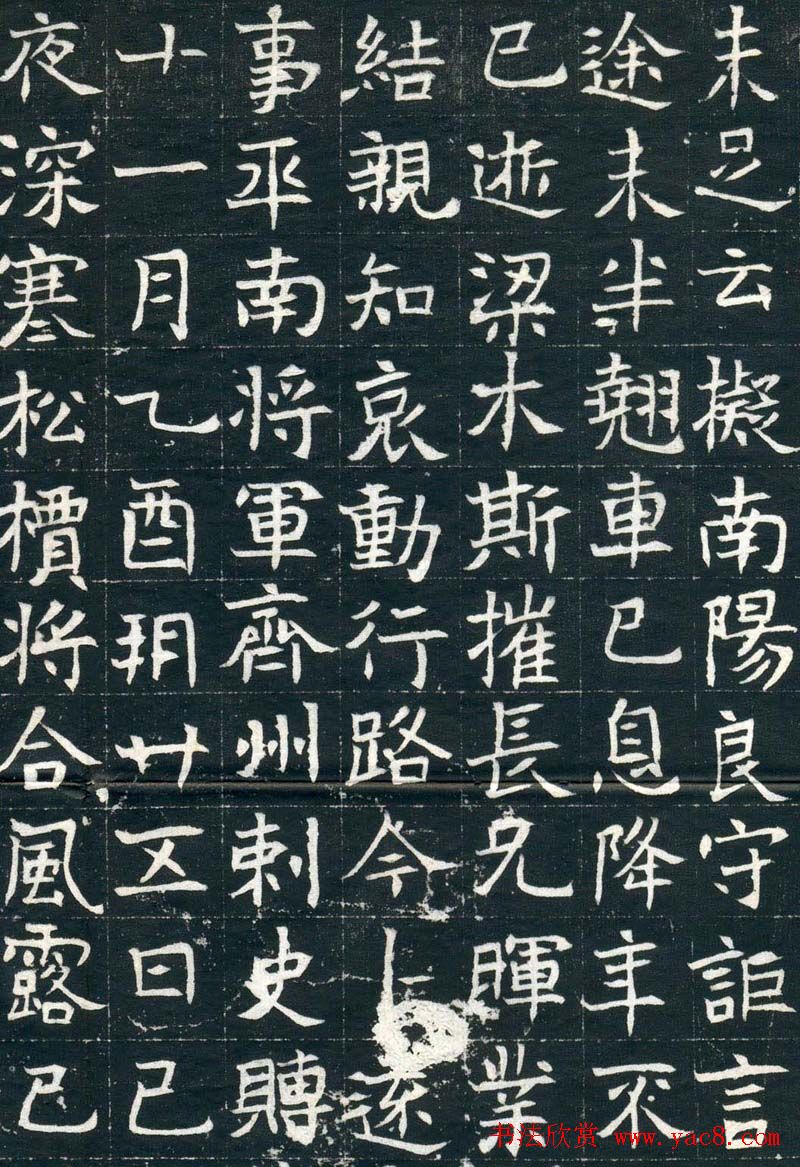 未足云擬南陽良守詎言
途未半翹車已息降年不
已逝梁木斯摧長兄暉業
結親知哀動行路今
事平南將軍齊州刺史贈
十一月乙酉朔廿五日己
夜深寒松檟將合風露已
书法欣赏 www.yac8.com